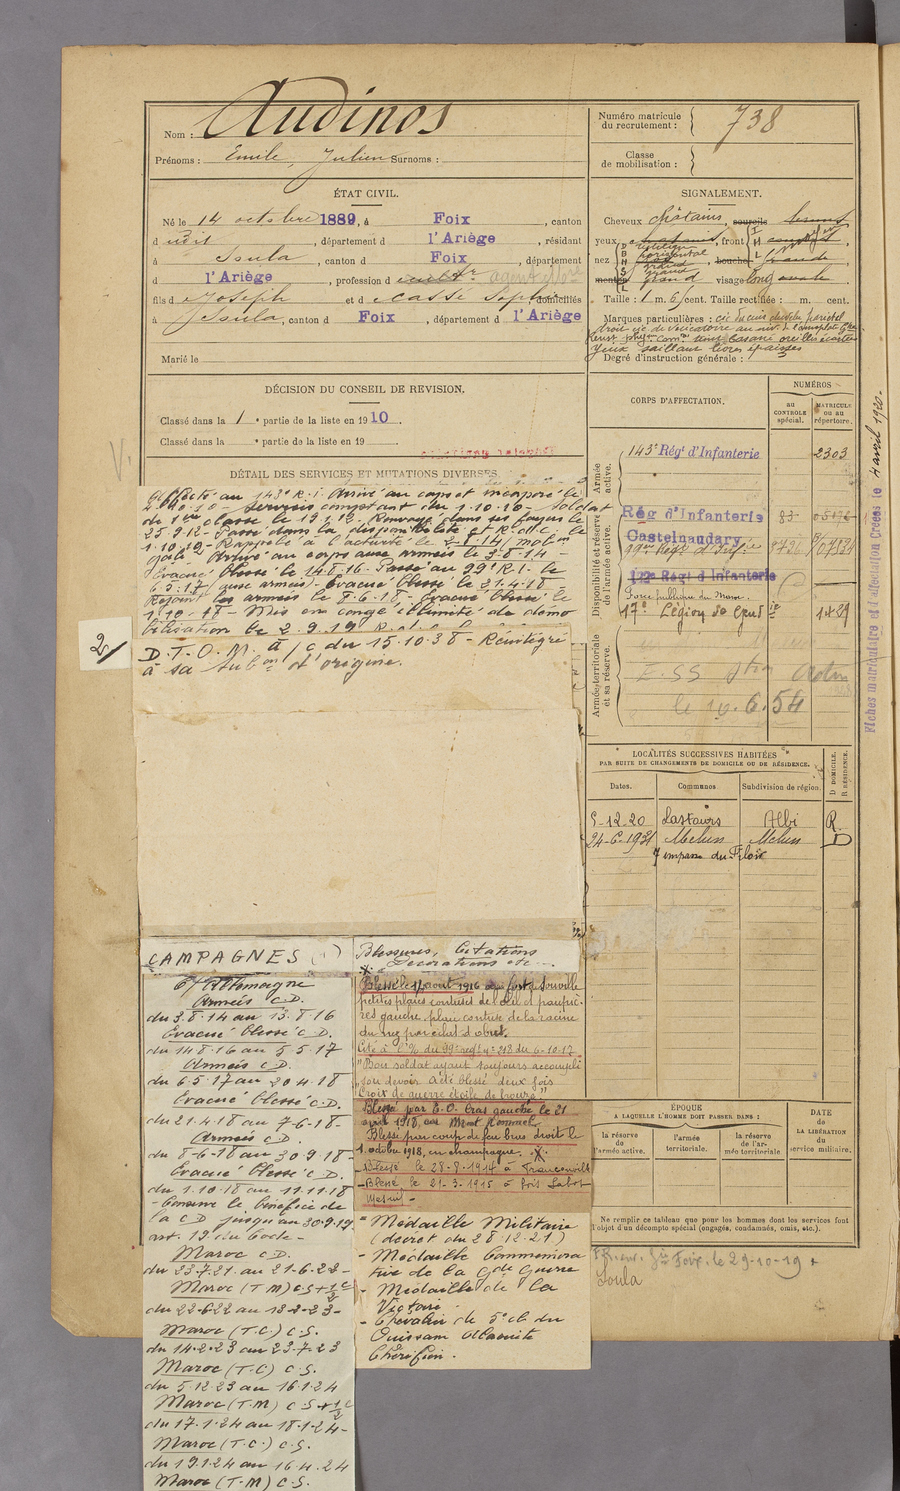 Nom : Audinos
Prénoms : Emile, Julien Surnoms :
ÉTAT CIVIL.
Né le 14 octobre 1889, à Foix, canton
d udit, département d l'Ariège, résidant
à Soula, canton d Foix, département
d l'Ariège, profession d
fils d Joseph et d Cassé Sophie domiciliés
à Soula, canton d Foix, département d l'Ariège
Marié le
DÉCISION DU CONSEIL DE REVISION.
Classé dans la 1 e partie de la liste en 1910.
Classé dans la e partie de la liste en 19
DÉTAIL DES SERVICES ET MUTATIONS DIVERSES
Affecté au 143e R.I. Arrivé au corps et incorporé le
2.10.10 - Services comptant du 1.10.10 - Soldat
de 1ère classe le
25.9.12 - Passé dans la disponibilité
1.10.12 - Rappelé à l'activité le 2-8-14 / mob on
gale - Arrivé au corps aux armées le 3-8-14 -
Evacué blessé le 14.8.16 - Passé au 99e R.I. le
6.5.17 / aux armées - Evacué blessé le 21.4.18 -
Rejoint les armées le 8.6.18 - Evacué blessé le
1.10.18 - Mis en congé illimité de démo
bilisation le 2.9.19
2/
D.T.O.M. a/c du 15.10.38 - Réintégré
à sa Sub on d'origine.
CAMPAGNES (1)
C/ Allemagne
Armées C.D.
du 3.8.14 au 13.8.16
Evacué blessé C.D.
du 14.8.16 au 5.5.17
Armées C.D.
du 6.5.17 au 20.4.18
Evacué blessé C.D.
du 21.4.18 au 7-6-18-
Armées C.D.
du 8-6-18 au 30.9.18-
Evacué blessé C.D.
du 1.10.18 au 11.11.18
- Conserve le bénéfice de
la C D jusqu'au 30.9.19
art. 19 du Code -
Maroc C.D.
du 23.7.21 au 21-6-22-
Maroc (T M) C.S + 1/2 C
du 22-6-22 au 13-2-23-
Maroc (T.C.) C.S.
du 14.2.23 au 23.7.23
Maroc (T.C) C.S.
du 5.12.23 au 16.1.24
Maroc (T.M) C.S + 1/2 C
du 17.1.24 au 18.1.24-
Maroc (T.C.) C.S.
du 19.1.24 au 16.4.24
Maroc (T-M) C.S.
Blessures, Citations
Décorations etc...
Blessé le 14 août 1916 au fort Souville
petites plaies contuses de l'œil et paupiè-
res gauche, plaie contuse de la racine
du nez par éclat d'obus.
Cité à l'O/ du 99e régt n° 218 du 6-10-17
"Bon soldat ayant toujours accompli
son devoir. A été blessé deux fois
Croix de guerre étoile de bronze"
Blessé par E.O. bras gauche, le 21
avril 1918, au Mont Kemmel
Blessé par coup de feu bras droit le
1 octobre 1918, en champagne. X.
- Blessé le 28-8-1914 à
- Blessé le 21-3-1915 à bois Sabot
Mesnil -
"Médaille Militaire
(décret du 28.12.21)
- Médaille Commémora
tive de la Gde Guerre
- Médaille de la
Victoire.
- Chevalier de 5e cl. du
Ouissam Alaouite
Chérifien.
Numéro matricule du recrutement : 738
Classe de mobilisation :
SIGNALEMENT.
Cheveux châtains, sourcils
yeux, front
nez, bouche grande
menton, visage long ovale
Taille : 1 m. 6 cent. Taille rectifiée : m. cent.
Marques particulières :
yeux saillants lèvres épaisses
Degré d'instruction générale :
CORPS D'AFFECTATION.
NUMÉROS
au CONTROLE spécial.
MATRICULE ou au répertoire.
Armée active.
143e Régt d'Infanterie 2303
Disponibilité et réserve de l'armée active.
Rég d'Infanterie 83
Castelnaudary
99me Régt d'Inf ie
122e Régt d'Infanterie
Force publique du Maroc.
17e Légion de Gend ie 1429
Armée territoriale et sa réserve.
le 10.6.54
LOCALITÉS SUCCESSIVES HABITÉES
PAR SUITE DE CHANGEMENTS DE DOMICILE OU DE RÉSIDENCE.
Dates. Communes Subdivision de région. D DOMICILE. R RÉSIDENCE.
5-12-20 Lastours Albi R.
24-6-1931 Melun Melun D
7 impasse du
ÉPOQUE
A LAQUELLE L'HOMME DOIT PASSER DANS :
la réserve de l'armée active.
l'armée territoriale.
la réserve de l'armée territoriale.
DATE de LA LIBÉRATION du service militaire.
Ne remplir ce tableau que pour les hommes dont les services font
l'objet d'un décompte spécial (engagés, condamnés, omis, etc.).
Foix. le 29-10-19
Soula
Fiches matriculaire et d'affectation Créées le 4 avril 1920.